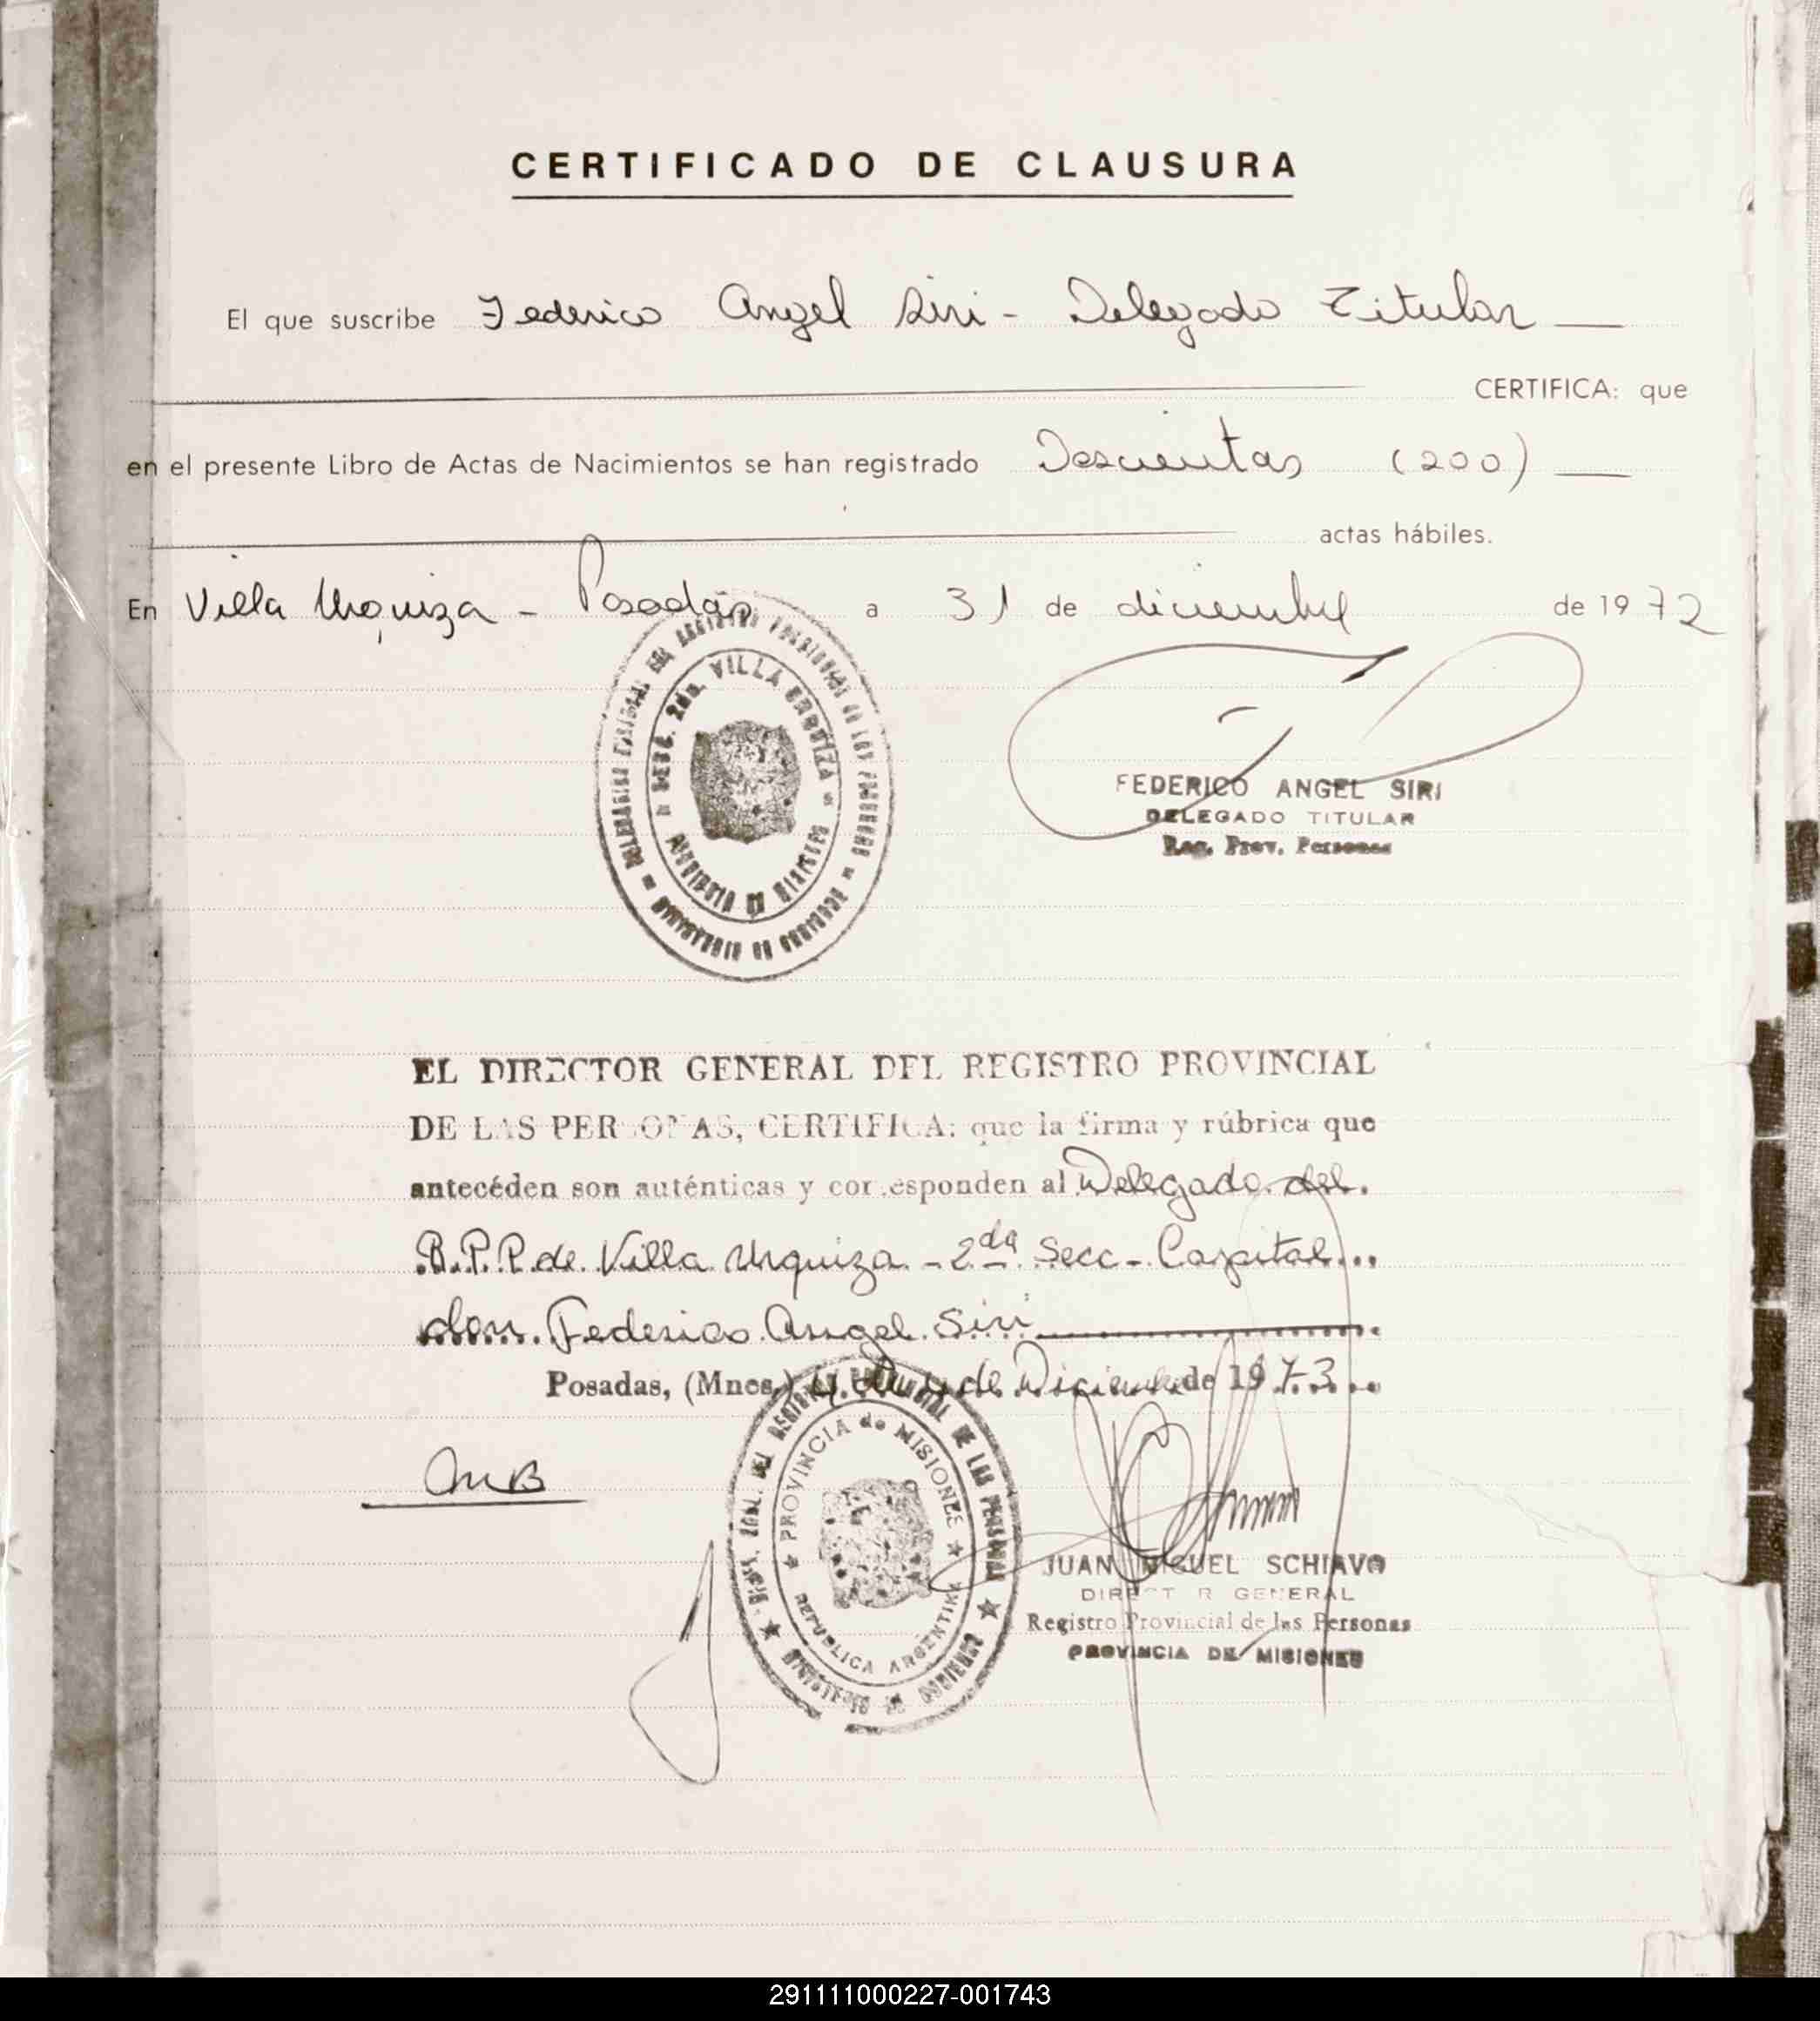 CERTIFICADO DE CLAUSURA
El que suscribe Federico Angel Siri - Delegado Titular
CERTIFICA: que
en el presente Libro de Actas de Nacimientos se han registrado Doscientas (200)
actas hábiles.
En Villa Urquiza - Posadas a 31 de diciembre de 1972
VILLA URQUIZA
PROVINCIA DE MISIONES
FEDERICO ANGEL SIRI
DELEGADO TITULAR
Reg. Prov. Personas
EL DIRECTOR GENERAL DEL REGISTRO PROVINCIAL
DE LAS PERSONAS, CERTIFICA: que la firma y rúbrica que
antecéden son auténticas y corresponden al Delegado del
R.P.P. de Villa Urquiza - 2da Secc - Capital
don Federico Angel Siri
Posadas, (Mnes.) 4 de Diciembre de 1973
PROVINCIA de MISIONES
REPUBLICA ARGENTINA
JUAN MIGUEL SCHIAVO
DIRECTOR GENERAL
Registro Provincial de las Personas
PROVINCIA DE MISIONES
291111000227-001743